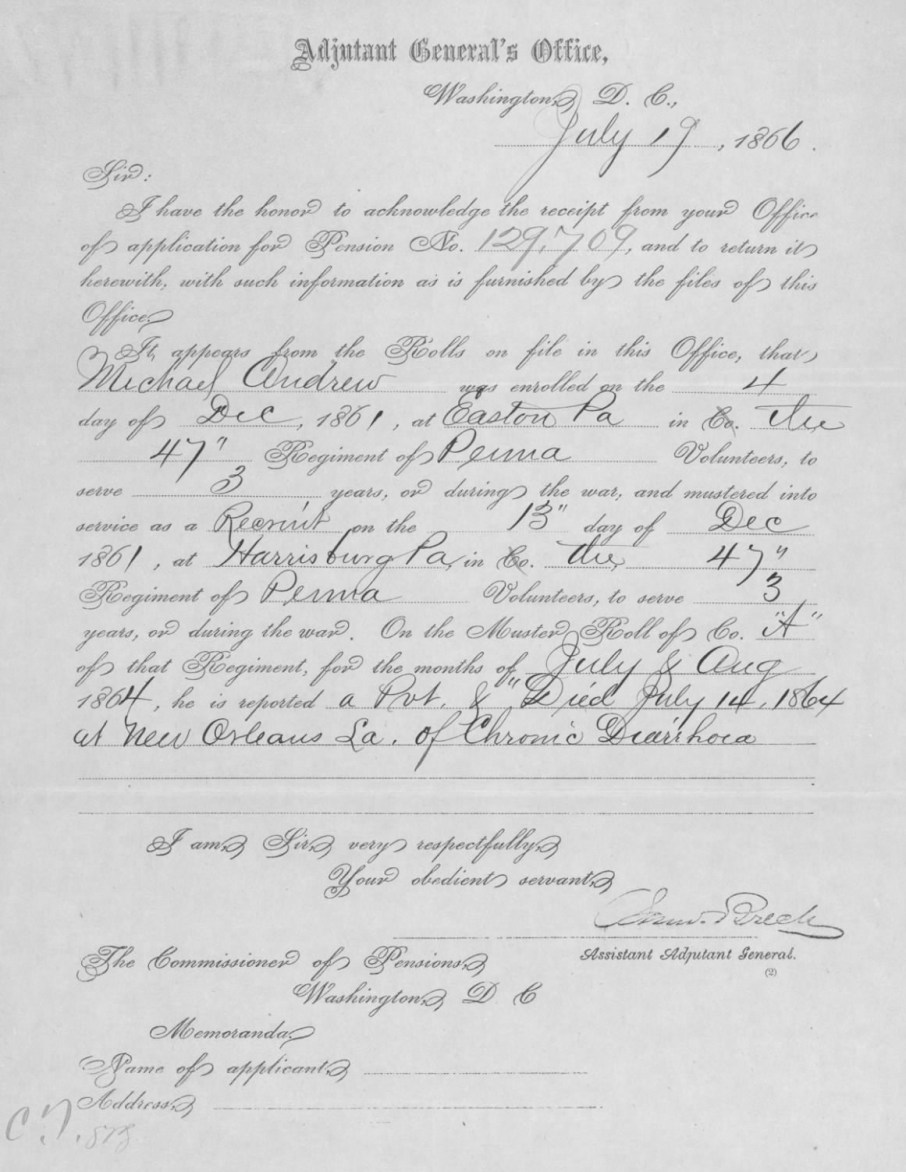 Adjutant General's Office,
Washington, D. C.,
July 19, 1866.
Sir:
I have the honor to acknowledge the receipt from your Office
of application for Pension No. 129,709, and to return it
herewith, with such information as is furnished by the files of this
Office.
It appears from the Rolls on file in this Office, that
Michael Andrew was enrolled on the 4
day of Dec, 1861, at Easton Pa in Co. the
47" Regiment of Penna Volunteers, to
serve 3 years, or during the war, and mustered into
service as a Recruit on the 13" day of Dec
1861, at Harrisburg Pa, in Co. the 47"
Regiment of Penna Volunteers, to serve 3
years, or during the war. On the Muster Roll of Co. "A"
of that Regiment, for the months of July & Aug
1864, he is reported a Pvt. & "Died July 14, 1864
at New Orleans La. of Chronic Diarrhoea
I am, Sir, very respectfully,
Your obedient servant,
Saml. Breck
Assistant Adjutant General.
(2)
The Commissioner of Pensions,
Washington, D C
Memoranda.
Name of applicant,
Address,